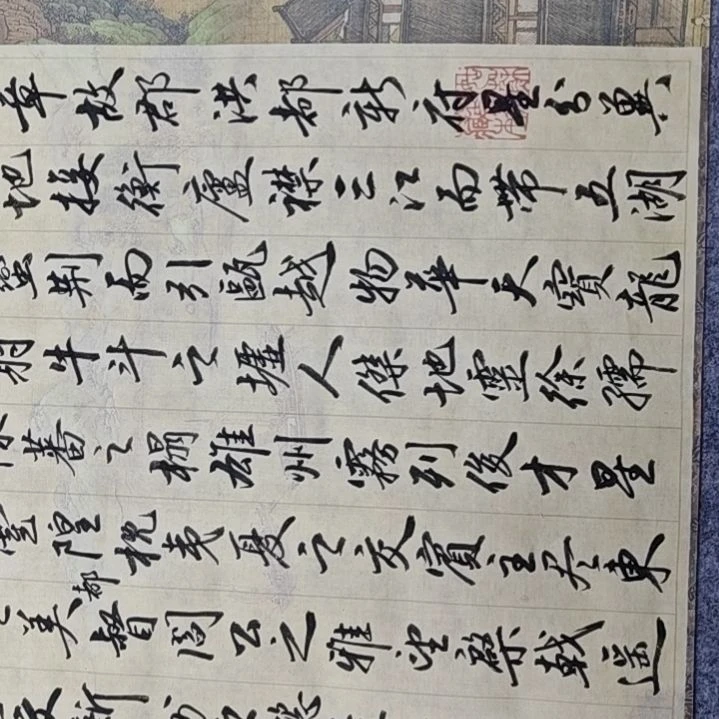 章故郡洪都新府星分翼
地接衡廬襟三江而帶五湖
蠻荊而引甌越物華天寶龍
射牛斗之墟人傑地靈徐孺
蕃之榻雄州霧列俊才星
臺隍枕夷夏之交賓主尽東
美都督閻公之雅望棨戟遥
新